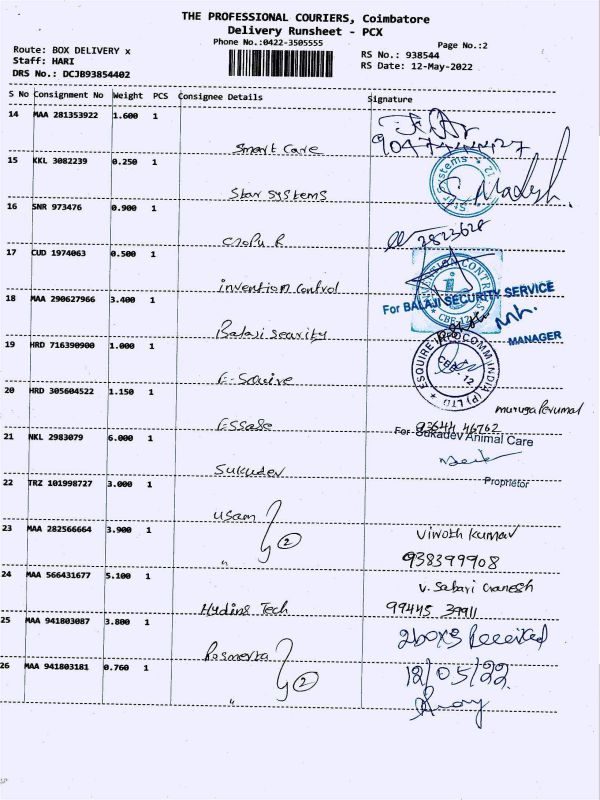 THE PROFESSIONAL COURIERS, Coimbatore
Delivery Runsheet - PCX
Phone No.:0422-3505555
Page No.:2
Route: BOX DELIVERY x
Staff: HARI
DRS No.: DCJB93854402
RS No.: 938544
RS Date: 12-May-2022
S No Consignment No Weight PCS Consignee Details Signature
14 MAA 281353922 1.600 1
Smart Care
15 KKL 3082239 0.250 1
Star Systems
16 SNR 973476 0.900 1
17 CUD 1974063 0.500 1
invention Control
18 MAA 290627966 3.400 1
For BALAJI SECURITY SERVICE
MANAGER
Balaji security
19 HRD 716390900 1.000 1
E-Squire
ESQUIRE INFOCOMM INDIA (P) LTD
20 HRD 305604522 1.150 1
Essae
93644 46762
21 NKL 2983079 6.000 1
For Sukadev Animal Care
Sukudev
Proprietor
22 TRZ 101998727 3.000 1
usam
2
23 MAA 282566664 3.900 1
Vinoth Kumar
"
938399908
24 MAA 566431677 5.100 1
V. Sabari Ganesh
Tech
99445 39911
25 MAA 941803087 3.800 1
2boxs Received
2
26 MAA 941803181 0.760 1
18/05/22
"